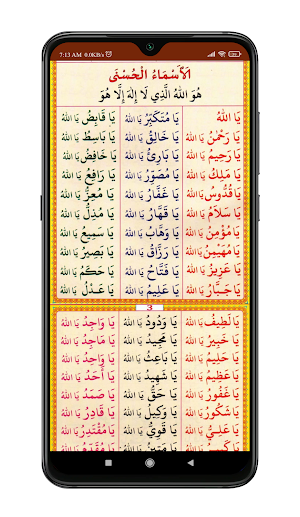 7:13 AM 0.0KB/s
اَلْأَسْمَاءُ الْحُسْنَى
هُوَ اللهُ الَّذِي لَا إِلٰهَ إِلَّا هُوَ
يَا اللهُ
يَا رَحْمٰنُ يَا اللهُ
يَا رَحِيمُ يَا اللهُ
يَا مَلِكُ يَا اللهُ
يَا قُدُّوسُ يَا اللهُ
يَا سَلَامُ يَا اللهُ
يَا مُؤْمِنُ يَا اللهُ
يَا مُهَيْمِنُ يَا اللهُ
يَا عَزِيزُ يَا اللهُ
يَا جَبَّارُ يَا اللهُ
يَا مُتَكَبِّرُ يَا اللهُ
يَا خَالِقُ يَا اللهُ
يَا بَارِئُ يَا اللهُ
يَا مُصَوِّرُ يَا اللهُ
يَا غَفَّارُ يَا اللهُ
يَا قَهَّارُ يَا اللهُ
يَا وَهَّابُ يَا اللهُ
يَا رَزَّاقُ يَا اللهُ
يَا فَتَّاحُ يَا اللهُ
يَا عَلِيمُ يَا اللهُ
يَا قَابِضُ يَا اللهُ
يَا بَاسِطُ يَا اللهُ
يَا خَافِضُ يَا اللهُ
يَا رَافِعُ يَا اللهُ
يَا مُعِزُّ يَا اللهُ
يَا مُذِلُّ يَا اللهُ
يَا سَمِيعُ يَا اللهُ
يَا بَصِيرُ يَا اللهُ
يَا حَكَمُ يَا اللهُ
يَا عَدْلُ يَا اللهُ
3
يَا لَطِيفُ يَا اللهُ
يَا خَبِيرُ يَا اللهُ
يَا حَلِيمُ يَا اللهُ
يَا عَظِيمُ يَا اللهُ
يَا غَفُورُ يَا اللهُ
يَا شَكُورُ يَا اللهُ
يَا عَلِيُّ يَا اللهُ
يَا كَبِيرُ يَا اللهُ
يَا وَدُودُ يَا اللهُ
يَا مَجِيدُ يَا اللهُ
يَا بَاعِثُ يَا اللهُ
يَا شَهِيدُ يَا اللهُ
يَا حَقُّ يَا اللهُ
يَا وَكِيلُ يَا اللهُ
يَا قَوِيُّ يَا اللهُ
يَا مَتِينُ يَا اللهُ
يَا وَاجِدُ يَا اللهُ
يَا مَاجِدُ يَا اللهُ
يَا وَاحِدُ يَا اللهُ
يَا أَحَدُ يَا اللهُ
يَا صَمَدُ يَا اللهُ
يَا قَادِرُ يَا اللهُ
يَا مُقْتَدِرُ يَا اللهُ
يَا مُقَدِّمُ يَا اللهُ